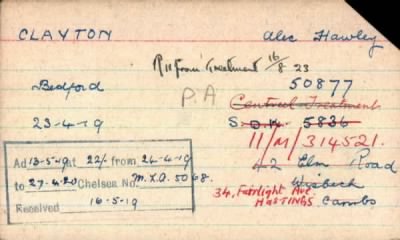 CLAYTON Alec Hawley
R II from Treatment 16/8 23
Bedford P.A 50877
Central Treatment
23-4-19 S.D.N. 5836
11/M/314521.
Ad 13-5-19 at 22/- from 24-4-19 42 Elm Road
to 27-4-20 Chelsea No. M.2.A. 5068. Wisbech
34, Fairlight Ave. Cambs
Received 16-5-19 HASTINGS